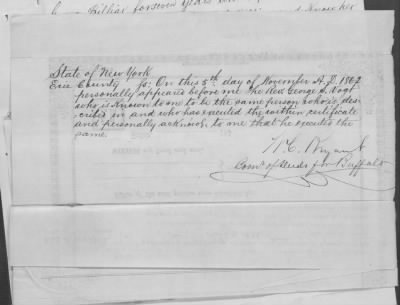 Billiar forseven years
State of New York
Erie County } ss: On this 5th day of November A.D. 1862
personally appeared before me the Rev. George S. Vogt
who is known to me to be the same person who is des-
cribed in and who has executed the within certificate
and personally acknow. to me that he executed the
same.
W. C. Bryant
Com. of Deeds for Buffalo